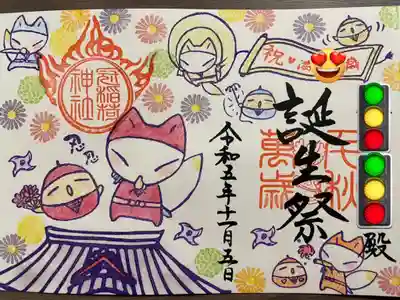 祝
誕生祭
千秋
萬歳
殿
令和五年十一月五日
冠稲荷
神社
忍忍